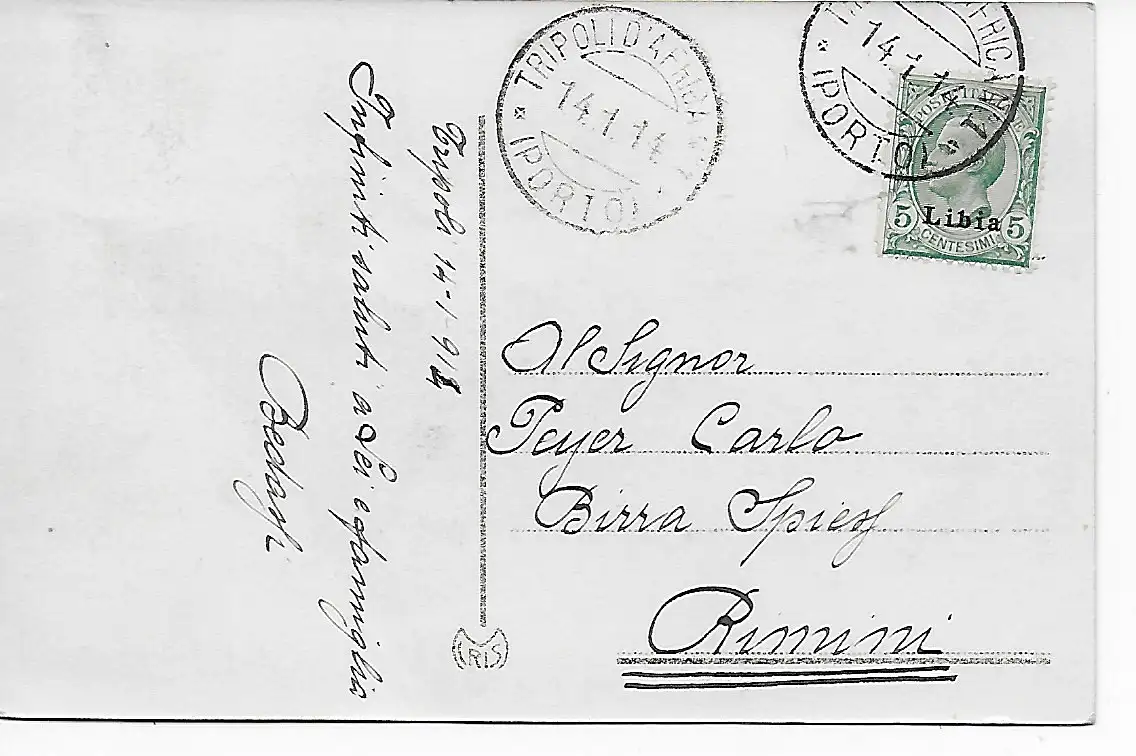 Tripoli 14-1-914
Infiniti saluti a Lei e famiglia
TRIPOLI D'AFRICA
14.1.14
(PORTO)
14.1.14
(PORTO)
POSTE ITALIANE
5 Libia 5
CENTESIMI
Al Signor
Peyer Carlo
Birra Spiess
Rimini